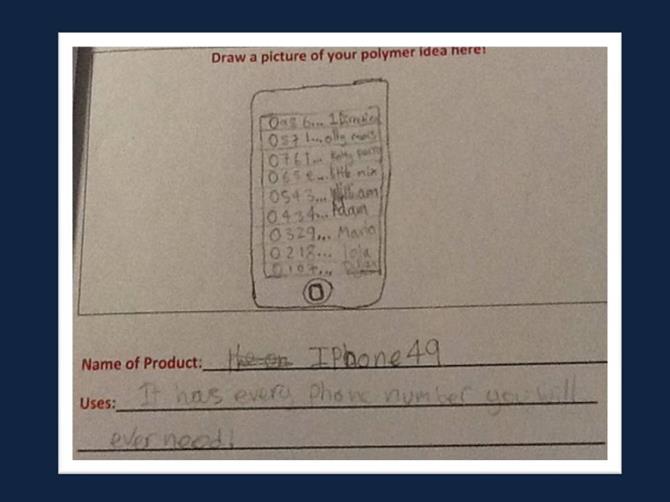 Draw a picture of your polymer idea here!
0986... 1Direction
0571... olly murs
0761... Katy perry
065... little mix
0543... William
0434... Adam
0329... Maria
0218... lola
0107...
Name of Product: IPhone49
Uses: It has every phone number you will
ever need!